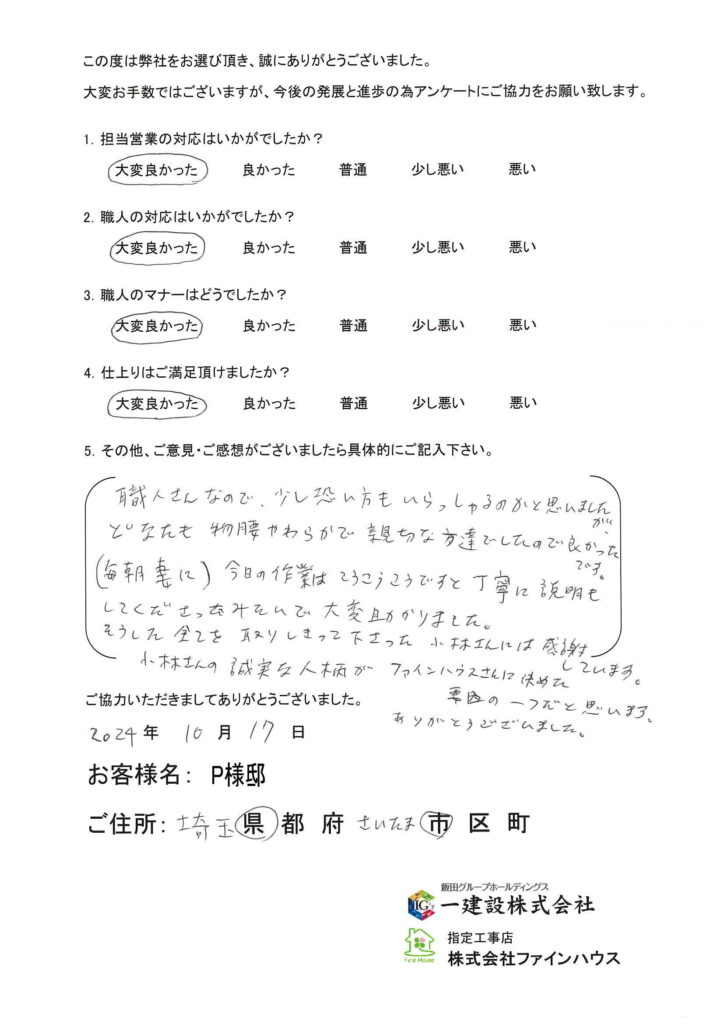 この度は弊社をお選び頂き、誠にありがとうございました。
大変お手数ではございますが、今後の発展と進歩の為アンケートにご協力をお願い致します。
1. 担当営業の対応はいかがでしたか？
大変良かった 良かった 普通 少し悪い 悪い
2. 職人の対応はいかがでしたか？
大変良かった 良かった 普通 少し悪い 悪い
3. 職人のマナーはどうでしたか？
大変良かった 良かった 普通 少し悪い 悪い
4. 仕上りはご満足頂けましたか？
大変良かった 良かった 普通 少し悪い 悪い
5. その他、ご意見・ご感想がございましたら具体的にご記入下さい。
職人さんなので、少し恐い方もいらっしゃるのかと思いましたが、
どなたも物腰やわらかで親切な方達でしたので良かったです。
(毎朝妻に)今日の作業はこうこうこうですと丁寧に説明も
してくださったみたいで大変助かりました。
そうした全てを取りしきって下さった小林さんには感謝しています。
小林さんの誠実な人柄がファインハウスさんに決めた
要因の一つだと思います。
ありがとうございました。
ご協力いただきましてありがとうございました。
2024年 10月 17日
お客様名： P様邸
ご住所：埼玉県 都 府 さいたま市 区 町
飯田グループホールディングス
IG
一建設株式会社
指定工事店
Fine House
株式会社ファインハウス